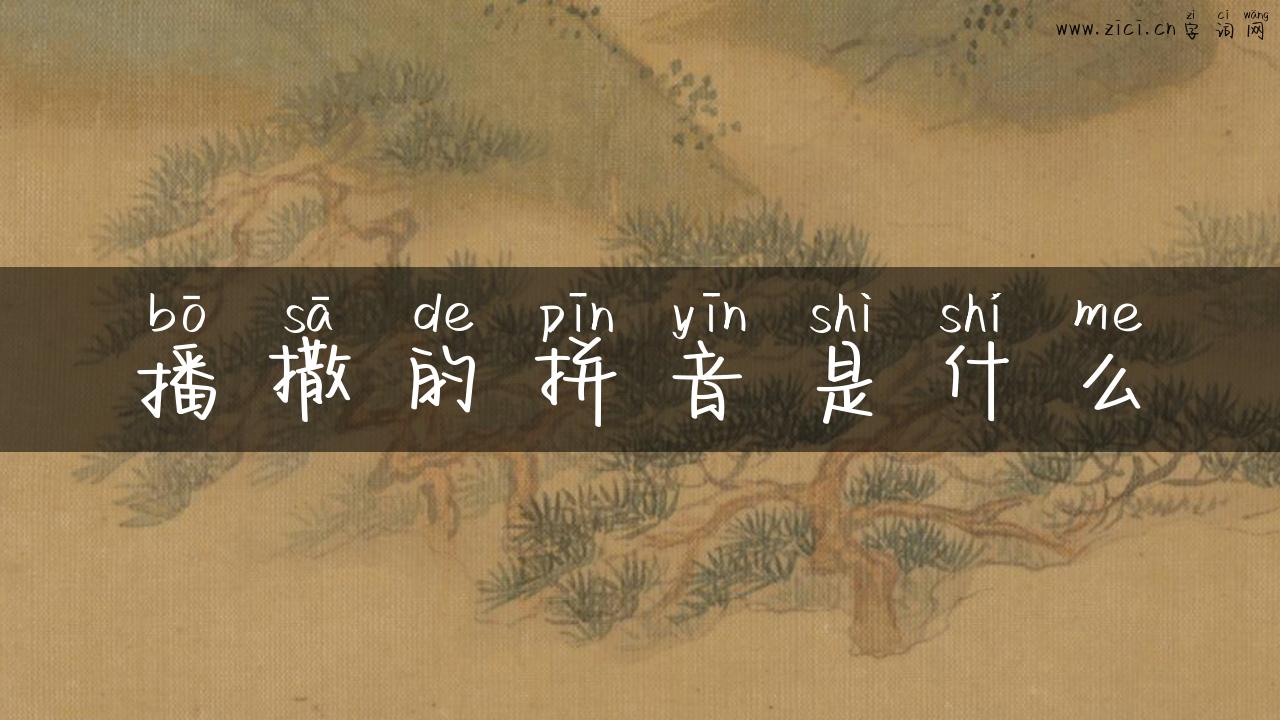 zì cí wǎng
www.zici.cn 字 词 网
bō sā de pīn yīn shì shí me
播 撒 的 拼 音 是 什 么